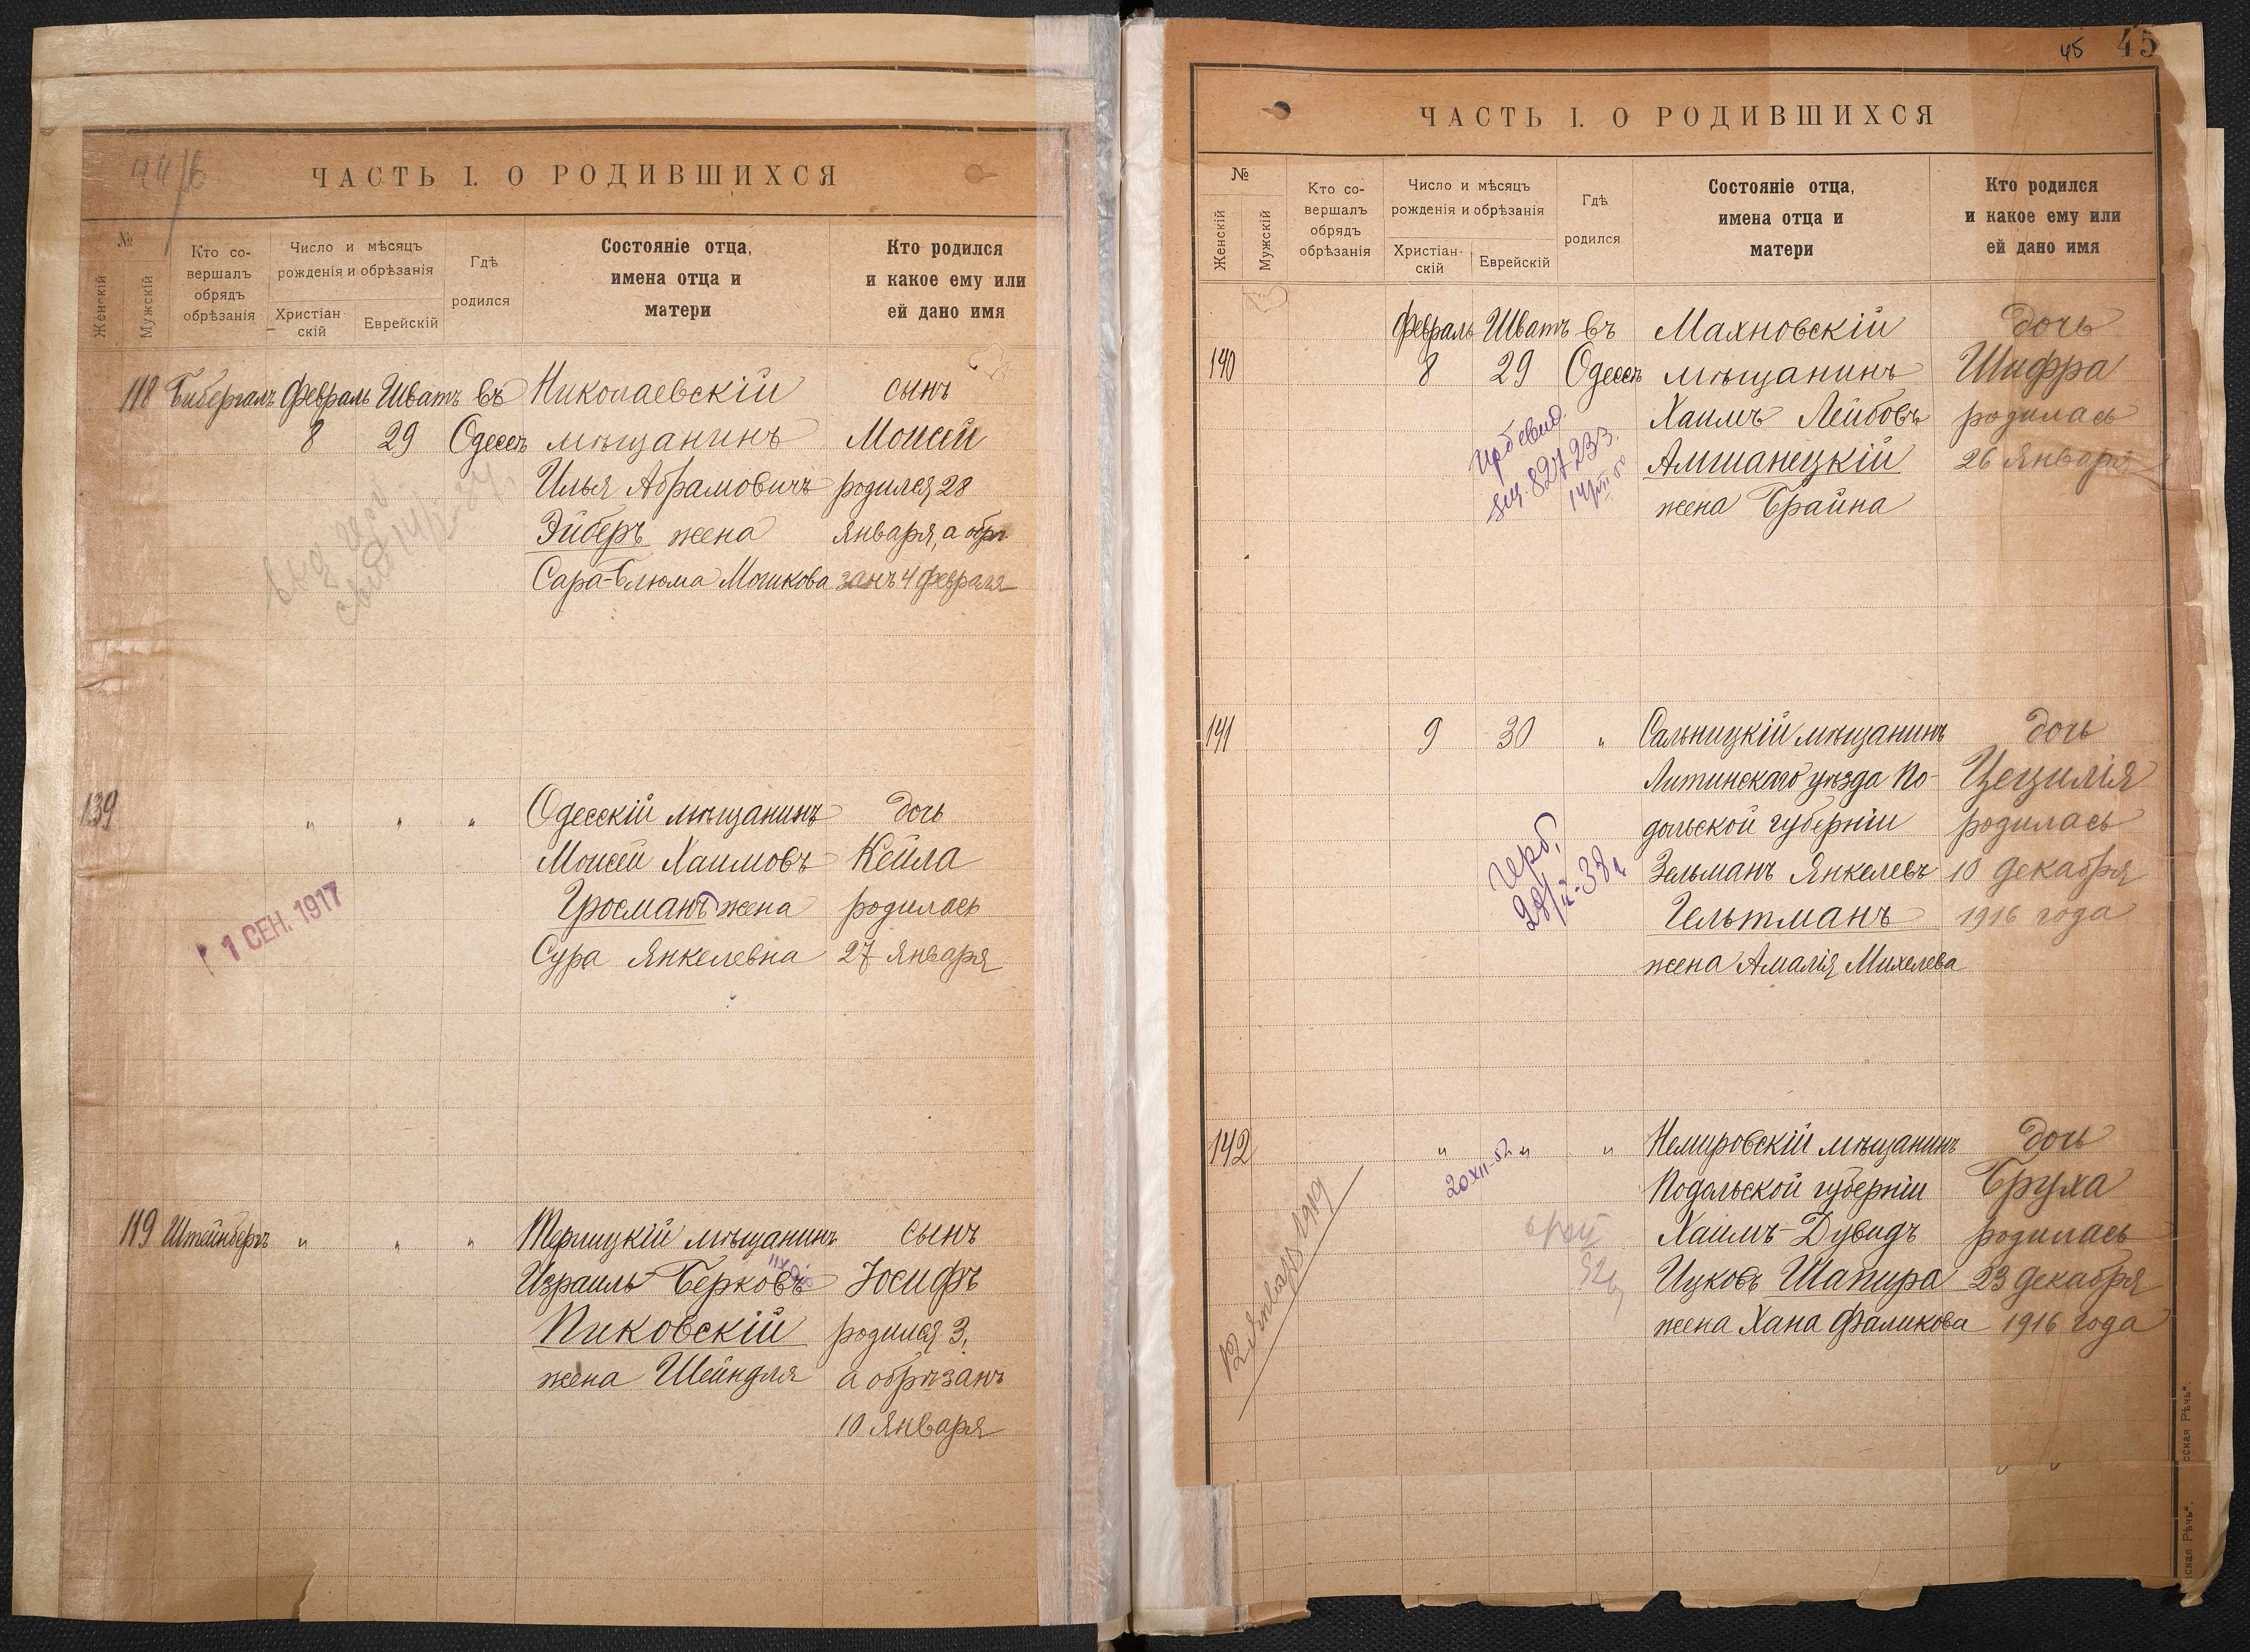 ЧАСТЬ I. О РОДИВШИХСЯ
№
Женскій
Мужскій
Кто со-
вершалъ
обрядъ
обрѣзанія
Число и мѣсяцъ
рожденія и обрѣзанія
Христіан-
скій
Еврейскій
Гдѣ
родился
Состояніе отца,
имена отца и
матери
Кто родился
и какое ему или
ей дано имя
118 Бибергалъ Февраль Шватъ въ Николаевскій сынъ
8 29 Одессѣ мѣщанинъ Моисей
Илья Абрамовичъ родился 28
Эйберъ жена января, а обрѣ-
Сара-Блюма Мошкова занъ 4 февраля
139 " " " Одесскій мѣщанинъ дочь
Моисей Хаимовъ Кейла
Гросманъ жена родилась
Сура Янкелевна 27 января
1 СЕН. 1917
119 Штейнберъ " " " мѣщанинъ сынъ
Израиль Берковъ Іосифъ
Пиковскій родился 3,
жена Шейндля а обрѣзанъ
10 января
45 45
ЧАСТЬ I. О РОДИВШИХСЯ
№
Женскій
Мужскій
Кто со-
вершалъ
обрядъ
обрѣзанія
Число и мѣсяцъ
рожденія и обрѣзанія
Христіан-
скій
Еврейскій
Гдѣ
родился
Состояніе отца,
имена отца и
матери
Кто родился
и какое ему или
ей дано имя
Февраль Шватъ въ Махновскій дочь
140 8 29 Одессѣ мѣщанинъ Шифра
Хаимъ Лейбовъ родилась
Амшанецкій 26 января
жена Брайна
141 9 30 " Сальницкій мѣщанинъ дочь
Литинскаго уѣзда По- Цецилія
дольской губерніи родилась
Зельманъ Янкелевъ 10 декабря
Гельтманъ 1916 года
жена Амалія Михелева
142 " " " Немировскій мѣщанинъ дочь
20 XII-52
Подольской губерніи Бруха
Хаимъ-Дувидъ родилась
Ицковъ Шапира 23 декабря
жена Хана Фаликова 1916 года
сская Рѣчь".
сская Рѣчь".